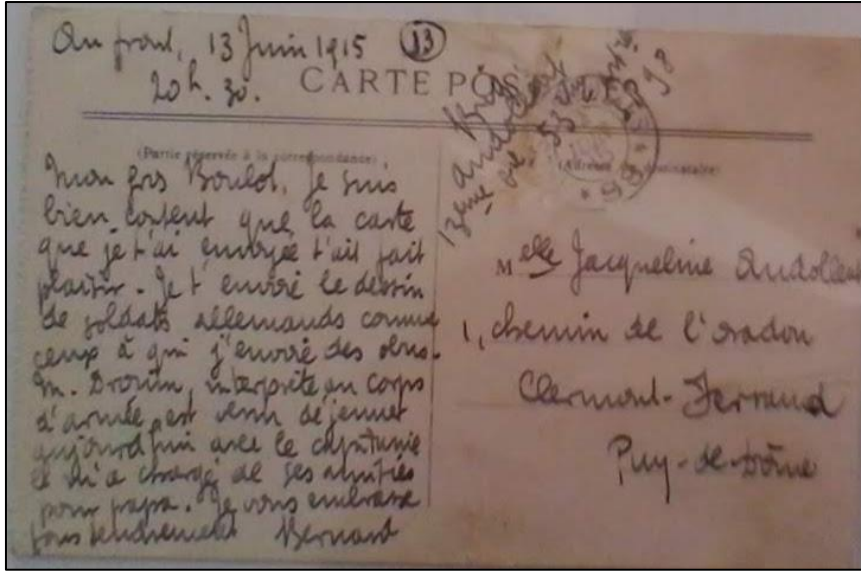 Au front, 13 Juin 1915 (13)
20 h. 30.
CARTE POSTALE
(Partie réservée à la correspondance)
Mon gros Boulot, je suis
bien content que la carte
que je t'ai envoyée t'ait fait
plaisir. Je t'envoie le dessin
de soldats allemands comme
ceux à qui j'envoie des obus.
M. Drouin, interprète au corps
d'armée, est venu déjeuner
aujourd'hui avec le capitaine
et m'a chargé de ses amitiés
pour papa. Je vous embrasse
tous tendrement Bernard
Andollent
13ème 53
(Adresse du destinataire)
Melle Jacqueline Audollent
1, chemin de l'oradou
Clermont-Ferrand
Puy-de-Dôme